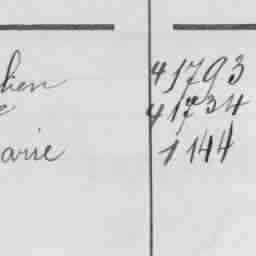 lien 41793
e 41734
arie 1144